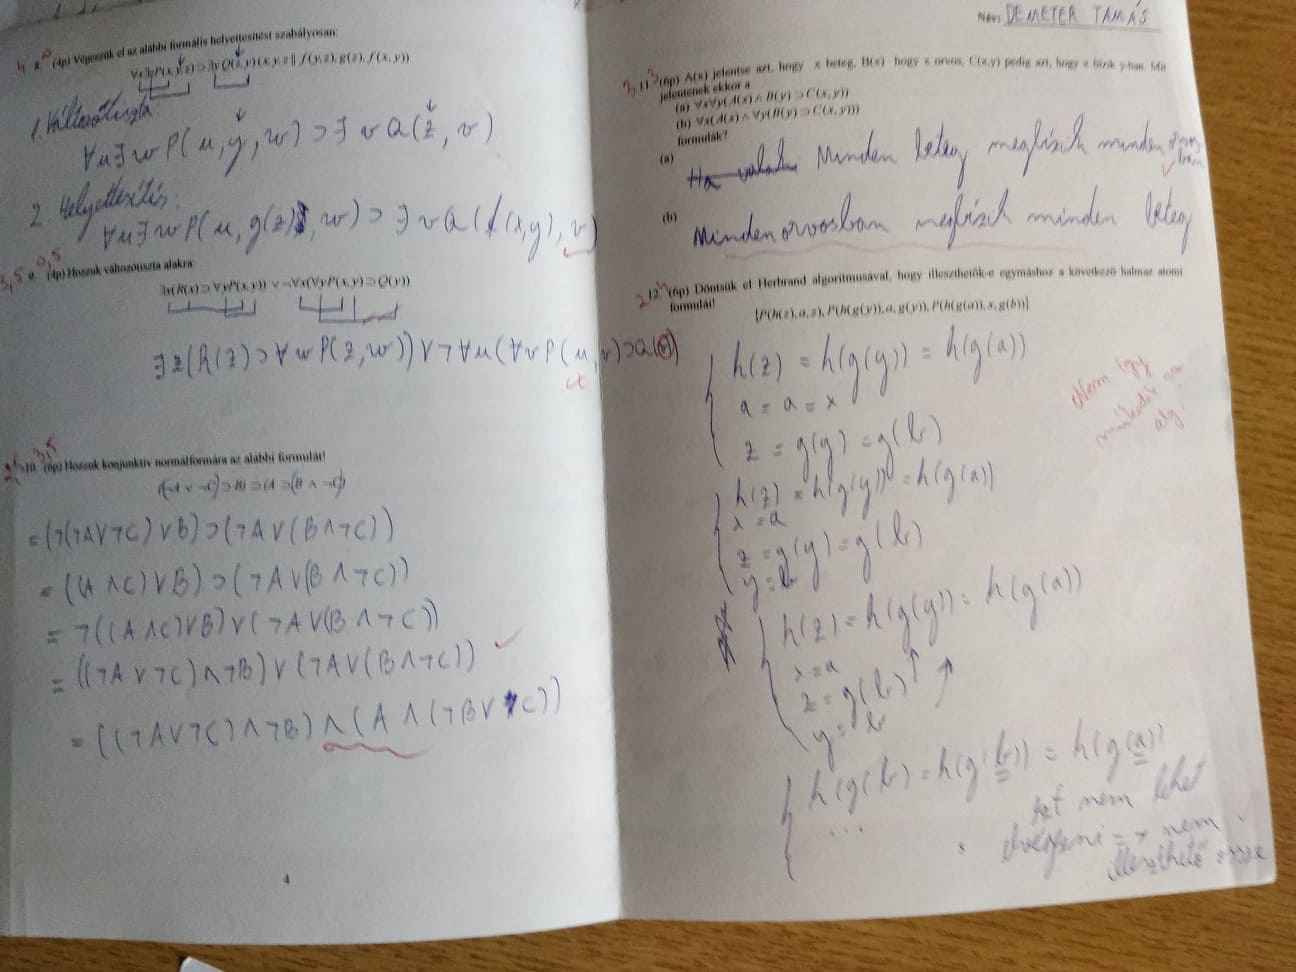 8. (4p) Végezzük el az alábbi formális helyettesítést szabályosan:
1. Változótiszta:
∀u∃wP(u, y, w) ⊃ ∃vQ(z, v)
2. Helyettesítés:
∀u∃wP(u, g(z), w) ⊃ ∃vQ(f(x,y), v)
3,5 9. 0,5 (4p) Hozzuk változótiszta alakra:
∃x(R(x) ⊃ ∀yP(x,y)) ∨ ¬∀x(∀yP(x,y) ⊃ Q(y))
∃z(R(z) ⊃ ∀wP(z,w)) ∨ ¬∀u(∀vP(u,v) ⊃ Q(v))
10. 3,5 (6p) Hozzuk konjunktív normálformára az alábbi formulát!
((¬A ∨ ¬C) ⊃ B) ⊃ (A ⊃ (B ∧ ¬C))
= (¬(¬A∨¬C) ∨ B) ⊃ (¬A ∨ (B∧¬C))
= ((A∧C) ∨ B) ⊃ (¬A ∨ (B∧¬C))
= ¬((A∧C) ∨ B) ∨ (¬A ∨ (B∧¬C))
= ((¬A∨¬C) ∧ ¬B) ∨ (¬A ∨ (B∧¬C))
= ((¬A∨¬C) ∧ ¬B) ∧ (A ∧ (¬B ∨ C))
4
Név: DEMETER TAMÁS
11. (6p) A(x) jelentse azt, hogy x beteg, B(x) hogy x orvos, C(x,y) pedig azt, hogy x bízik y-ban. Mit
jelentenek ekkor a
(a) ∀x∀y(A(x) ∧ B(y) ⊃ C(x,y))
(b) ∀x(A(x) ∧ ∀y(B(y) ⊃ C(x,y)))
formulák?
(a)
Minden beteg megbízik minden orvosban
(b)
Minden orvosban megbízik minden beteg
12. (6p) Döntsük el Herbrand algoritmusával, hogy illeszthetők-e egymáshoz a következő halmaz atomi
formulái!
{P(h(z), a, z), P(h(g(y)), a, g(y)), P(h(g(a)), x, g(b))}
h(z) = h(g(y)) = h(g(a))
a = a = x
z = g(y) = g(b)
Nem így
működik az
alg
h(z) = h(g(y)) = h(g(a))
x = a
z = g(y) = g(b)
y = b
h(z) = h(g(y)) = h(g(a))
x = a
z = g(b)
y = b
h(g(b)) = h(g(b)) = h(g(a))
...
nem lehet
elvégezni => nem
illeszthető össze